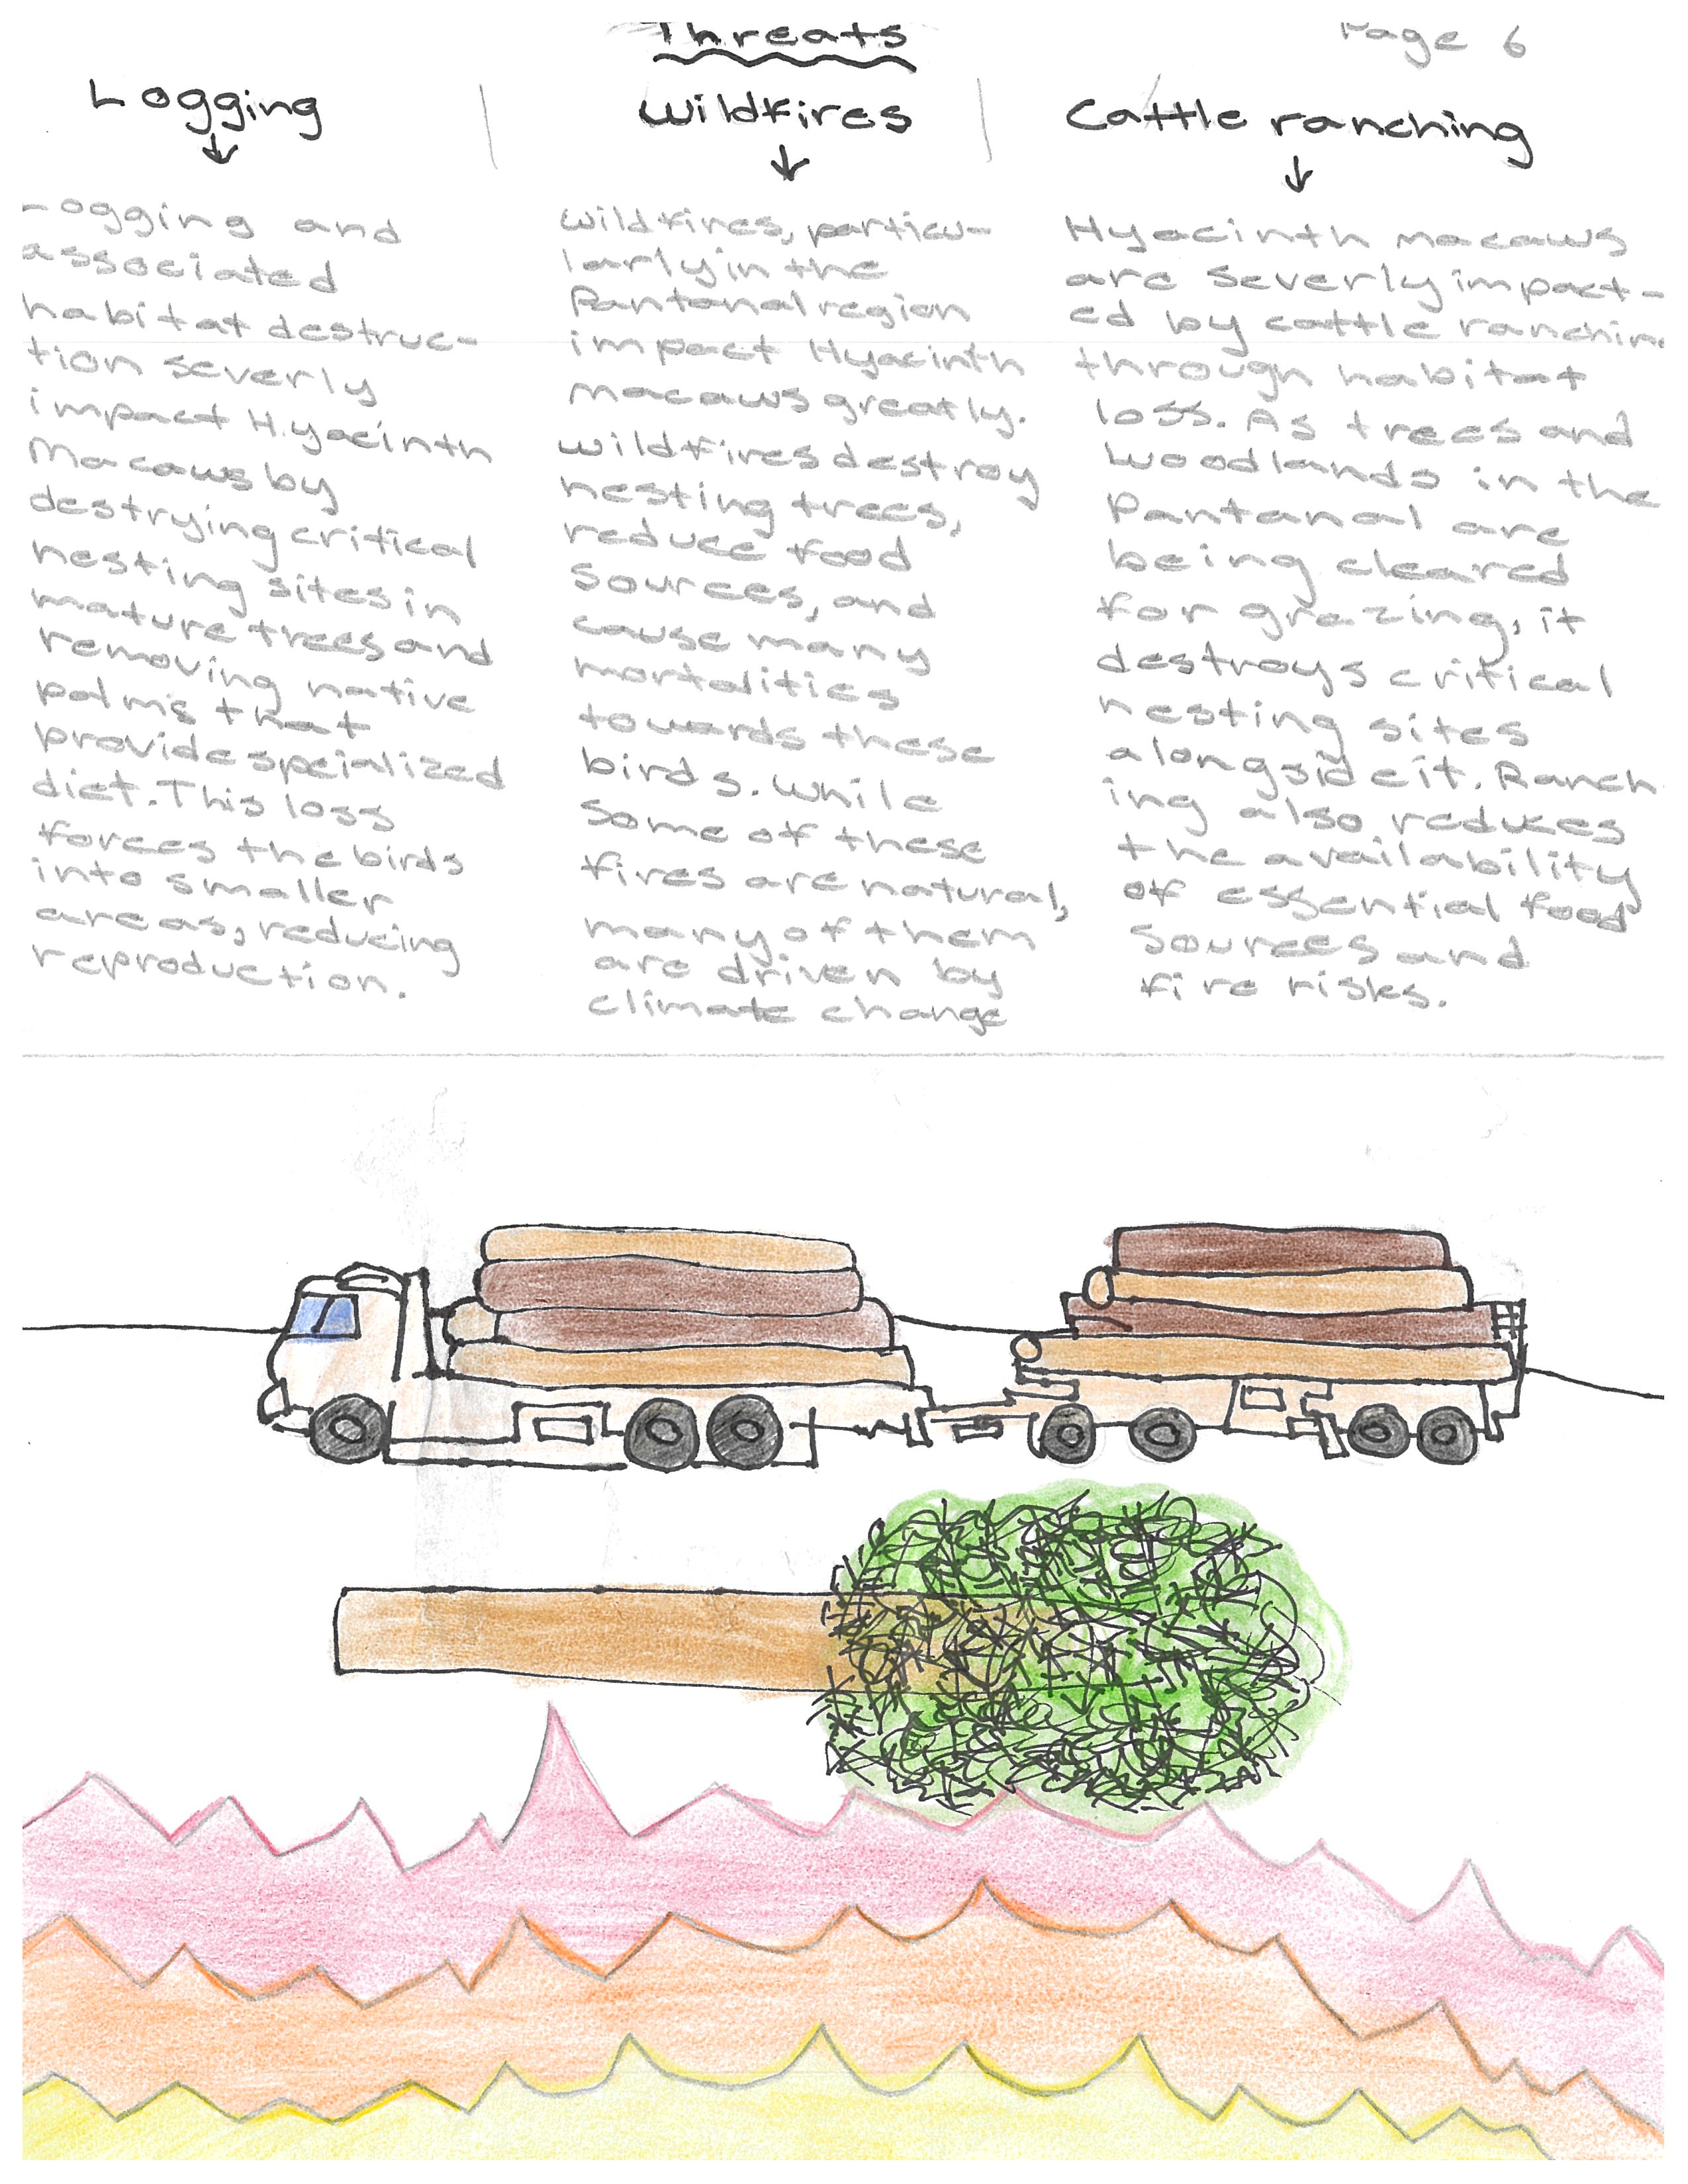 Threats
Page 6
Logging
Logging and
associated
habitat destruc-
tion severly
impact Hyacinth
Macaws by
destrying critical
nesting sites in
mature trees and
removing native
palms that
provide specialized
diet. This loss
forces the birds
into smaller
areas, reducing
reproduction.
Wildfires
Wildfires, particu-
larly in the
Pantanal region
impact Hyacinth
macaws greatly.
Wildfires destroy
nesting trees,
reduce food
sources, and
cause many
mortalities
towards these
birds. While
some of these
fires are natural,
many of them
are driven by
climate change
Cattle ranching
Hyacinth macaws
are severly impact-
ed by cattle ranching
through habitat
loss. As trees and
woodlands in the
Pantanal are
being cleared
for grazing, it
destroys critical
nesting sites
alongside it. Ranch
ing also reduces
the availability
of essential food
sources and
fire risks.